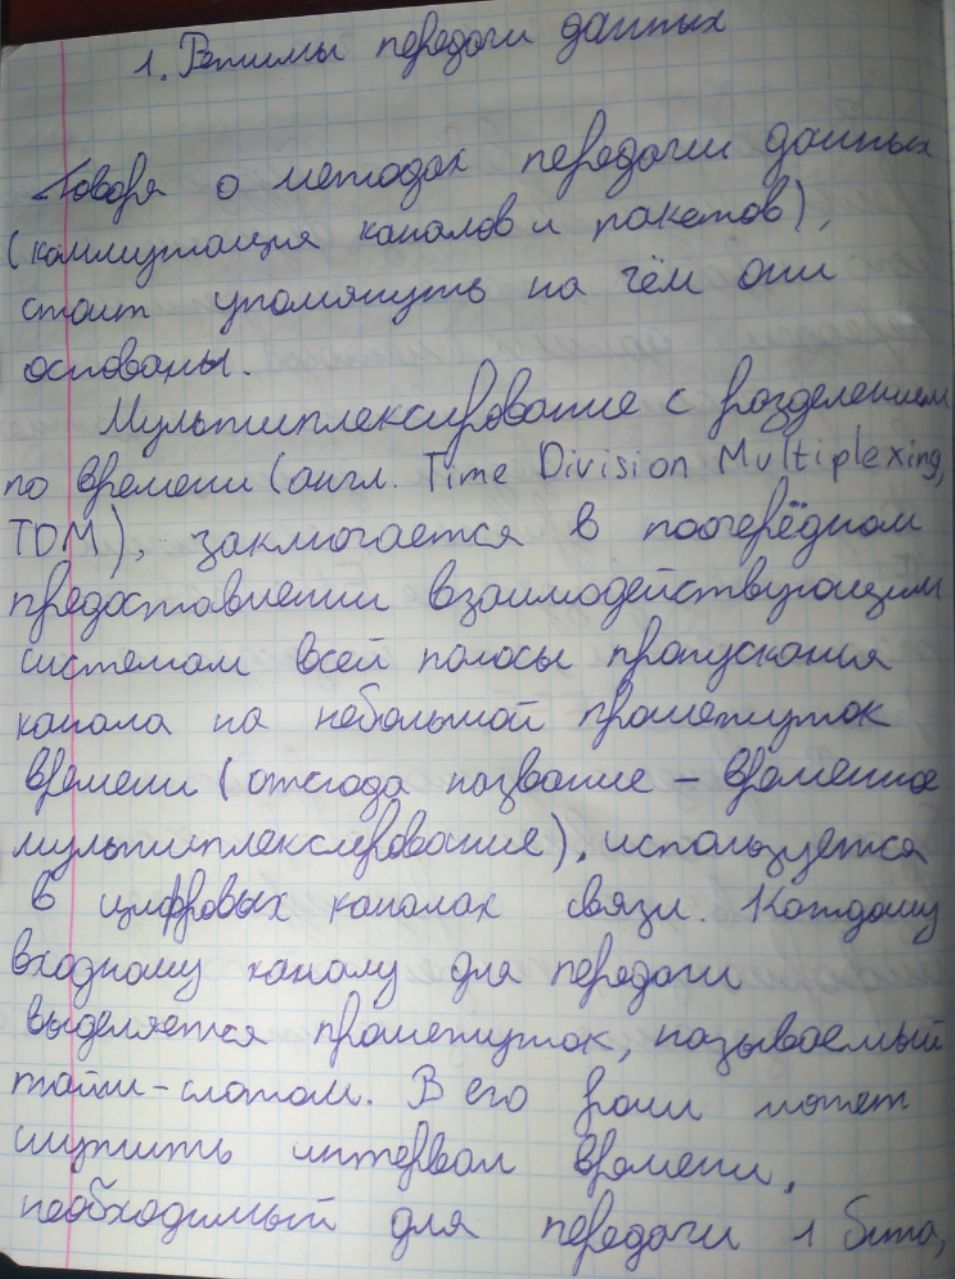 1. Режимы передачи данных
Говоря о методах передачи данных
(коммутация каналов и пакетов),
стоит упомянуть на чём они
основаны.
Мультиплексирование с разделением
по времени (англ. Time Division Multiplexing,
TDM), заключается в поочерёдном
предоставлении взаимодействующим
системам всей полосы пропускания
канала на небольшой промежуток
времени (отсюда название – временное
мультиплексирование), используется
в цифровых каналах связи. Каждому
входному каналу для передачи
выделяется промежуток, называемый
тайм-слотом. В его роли может
служить интервал времени,
необходимый для передачи 1 бита,